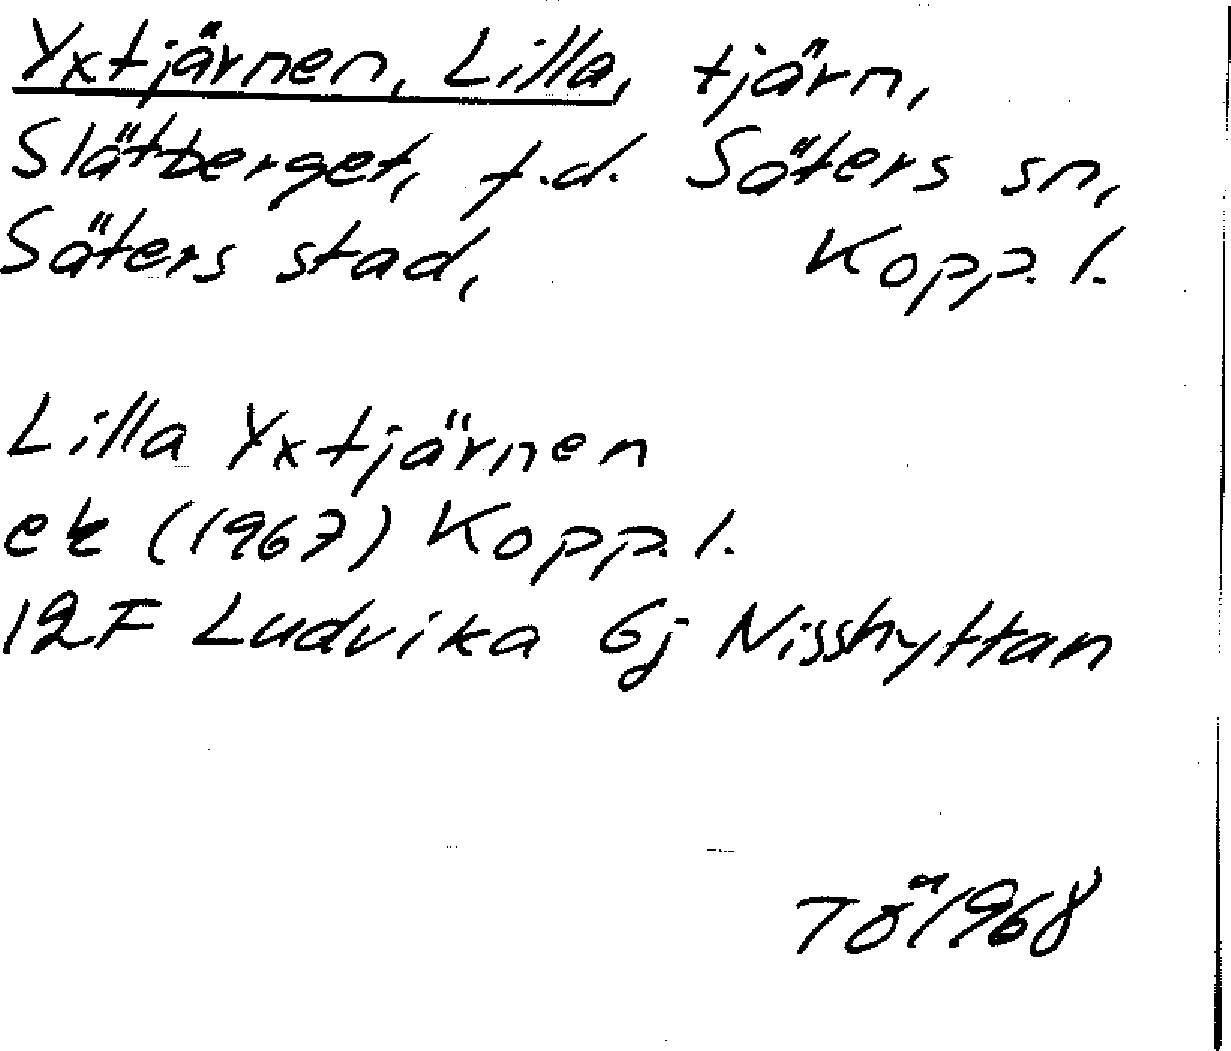 Yxtjärnen, Lilla, tjärn,
Slätberget, f.d. Säters sn,
Säters stad, Kopp. l.
Lilla Yxtjärnen
ek (1967) Kopp. l.
12F Ludvika 6j Nisshyttan
TÖ 1968